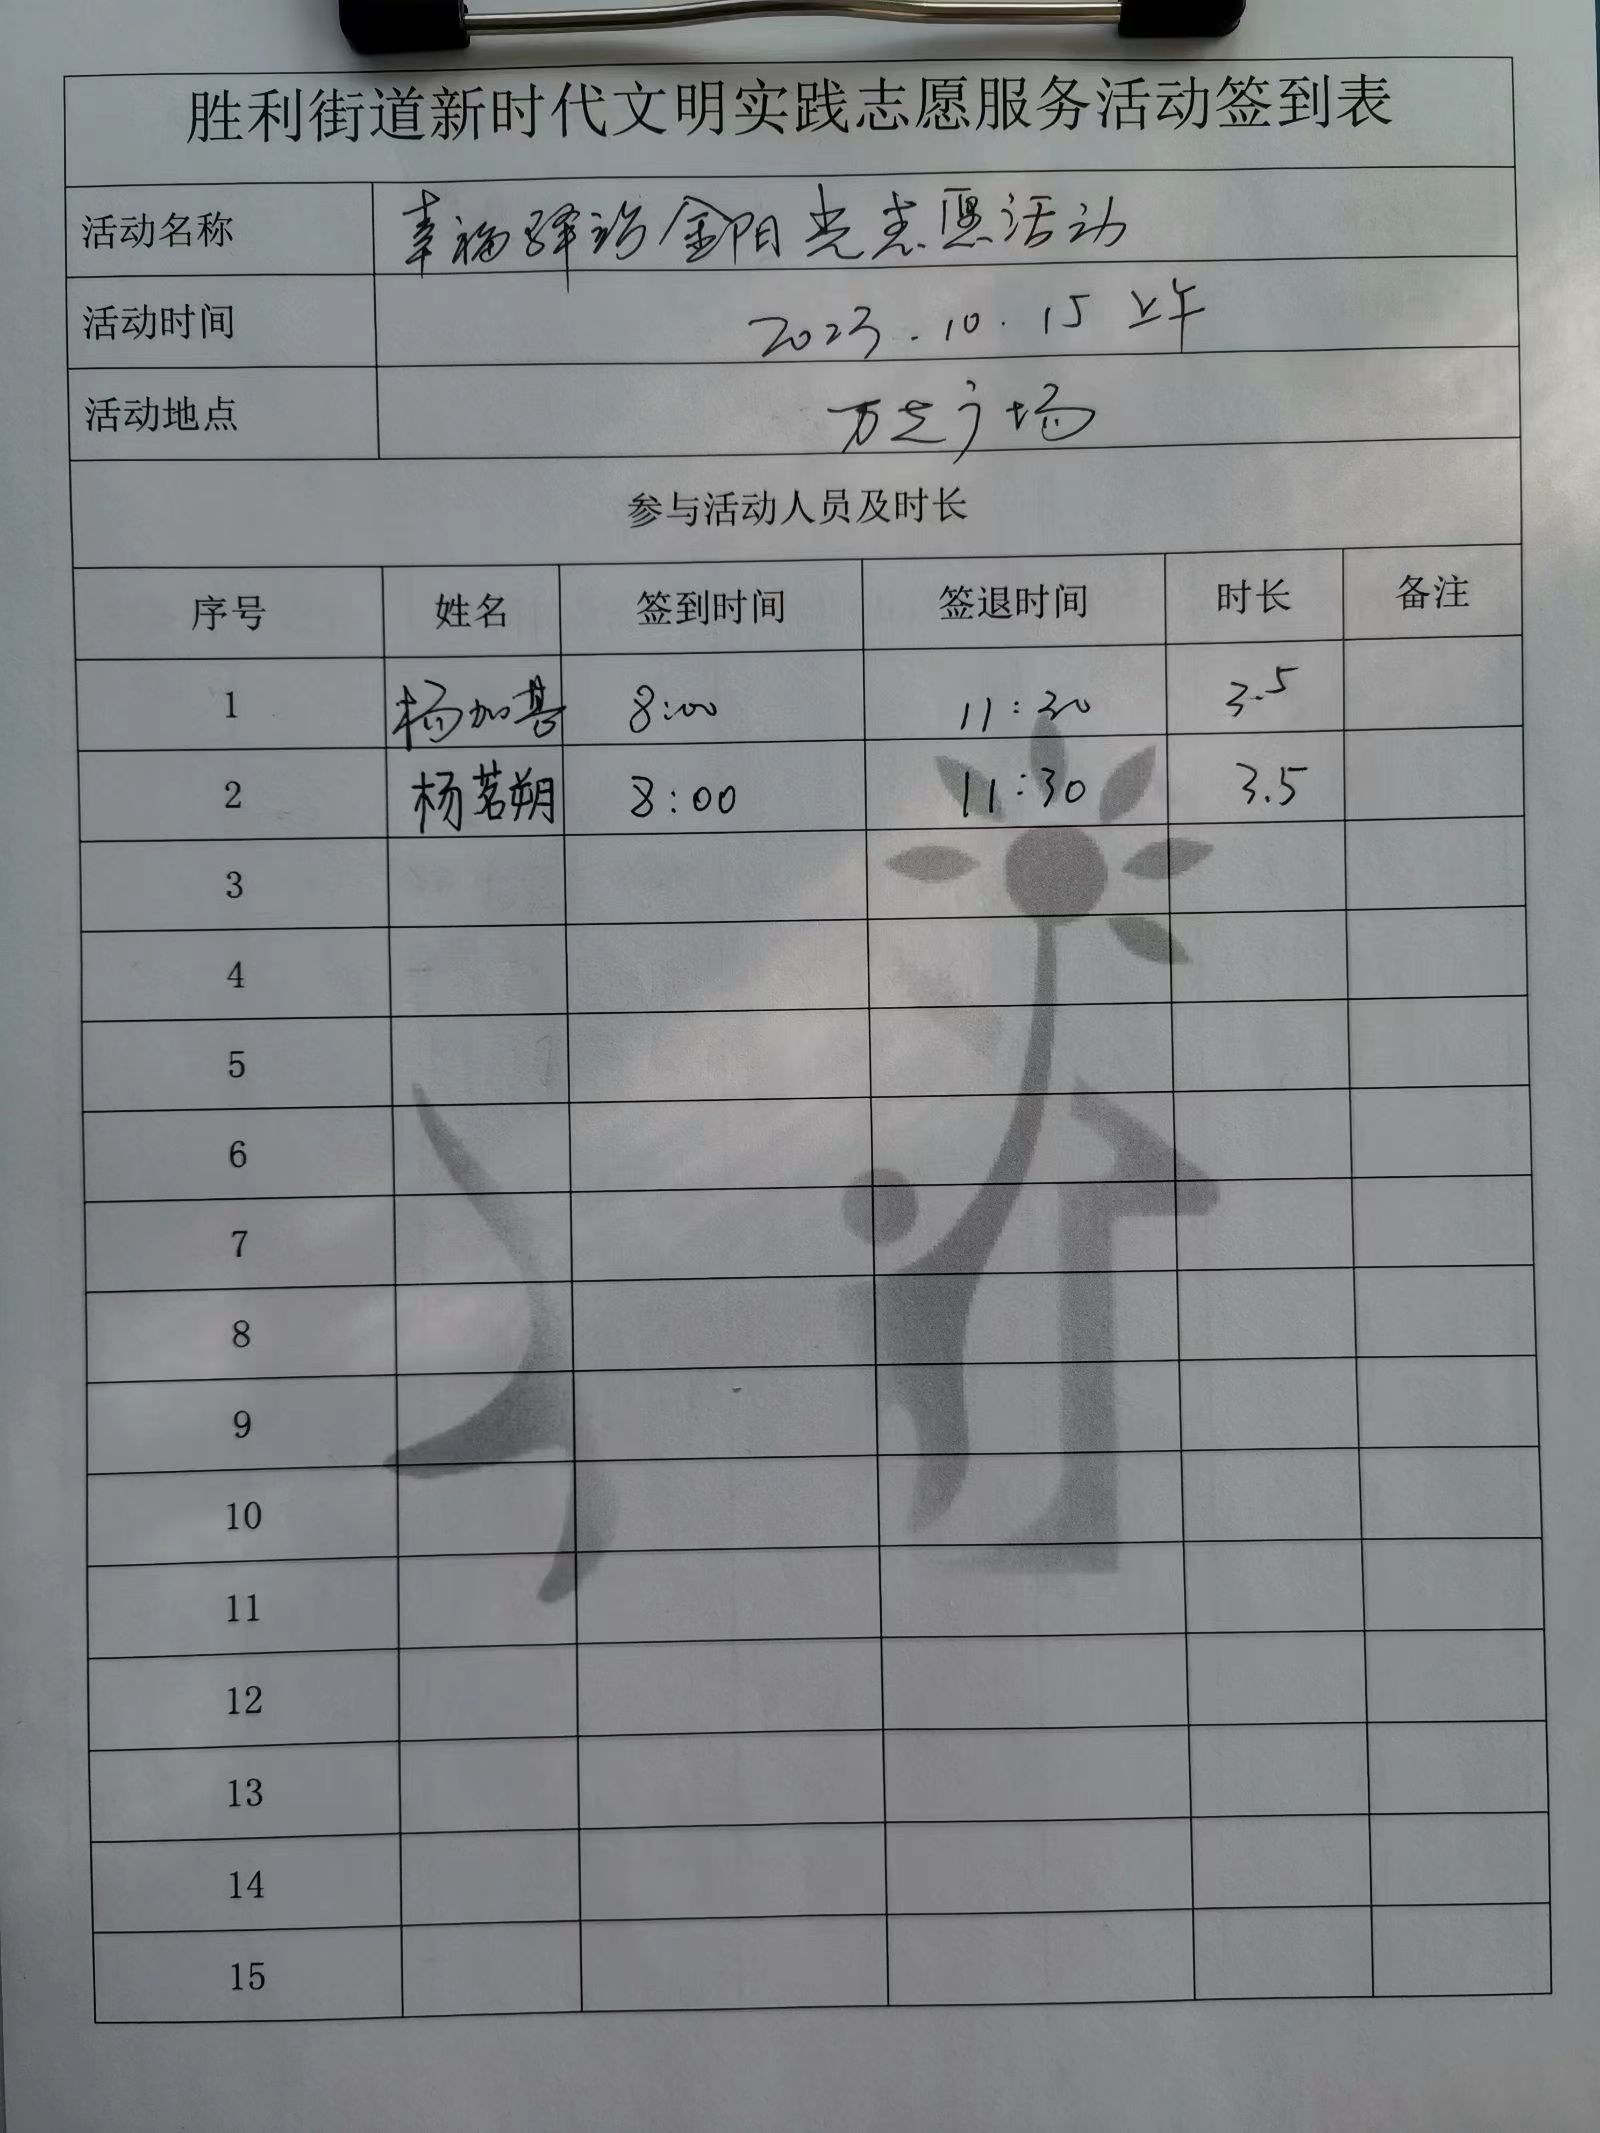 胜利街道新时代文明实践志愿服务活动签到表
活动名称 幸福驿站金阳光志愿活动
活动时间 2023.10.15 上午
活动地点 万达广场
参与活动人员及时长
序号 姓名 签到时间 签退时间 时长 备注
1 杨加基 8:00 11:30 3.5
2 杨茗朔 8:00 11:30 3.5
3
4
5
6
7
8
9
10
11
12
13
14
15